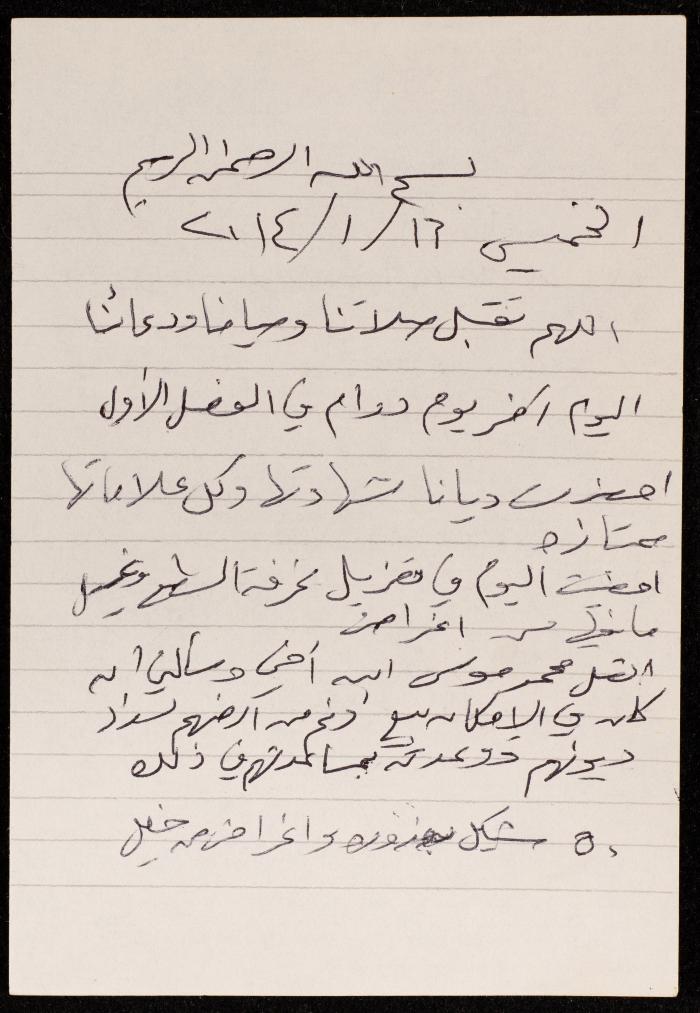 بسم الله الرحمن الرحيم
الخميس ١٦/١/٢٠١٤
اللهم تقبل صلاتنا وصيامنا ودعائنا
اليوم اخر يوم دوام في الفصل الأول
احضرت ديانا شهادتها وكل علاماتها
ممتازه
امضيت اليوم في تعزيل غرفة السطح وغسيل
ما فيها من اغراض
اتصل محمد موسى ابن أخي وسألني ان
كان في الإمكان بيع دونم من أرضهم لسداد
ديونهم ووعدته بمساعدتهم في ذلك
٥٠ شيكل بندوره واغراض من خليل